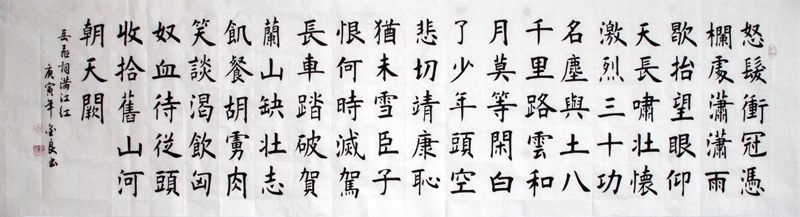 怒髮衝冠憑
欄處瀟瀟雨
歇抬望眼仰
天長嘯壯懷
激烈三十功
名塵與土八
千里路雲和
月莫等閑白
了少年頭空
悲切靖康恥
猶未雪臣子
恨何時滅駕
長車踏破賀
蘭山缺壯志
飢餐胡虜肉
笑談渴飲匈
奴血待從頭
收拾舊山河
朝天闕
岳飛詞滿江紅
庚寅年良書